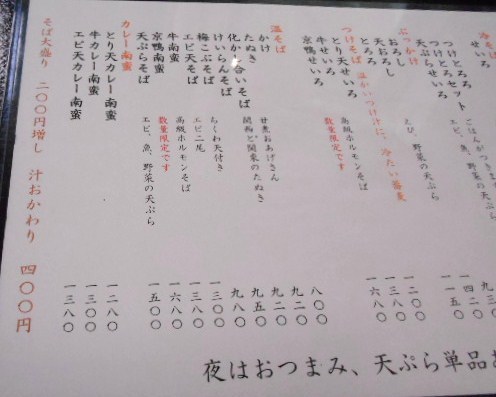 冷そば
せいろ
つけとろろ
つけとろろセット ごはんがつきま
天ぷらせいろ エビ、魚、野菜の天ぷら
一四二〇
一一五〇
ぶっかけ
おろし
天おろし えび、野菜の天ぷら
とろろ
つけそば 温かいつけ汁に、冷たい蕎麦
とり天せいろ 一二〇〇
牛せいろ 高級ホルモンそば 一三八〇
京鴨せいろ 数量限定です 一六八〇
温そば
かけ 八〇〇
たぬき 甘煮おあげさん 九二〇
化かし合いそば 関西と関東のたぬき 九二〇
けいらんそば 九五〇
梅こぶそば ちくわ天付き 九八〇
エビ天そば エビ二尾 一三〇〇
牛南蛮 高級ホルモンそば 一三八〇
京鴨南蛮 数量限定です 一六八〇
天ぷらそば エビ、魚、野菜の天ぷら 一五〇〇
カレー南蛮
とり天カレー南蛮 一二八〇
牛カレー南蛮 一三〇〇
エビ天カレー南蛮 一三八〇
そば大盛り 二〇〇円増し 汁おかわり 四〇〇円
夜はおつまみ、天ぷら単品あ